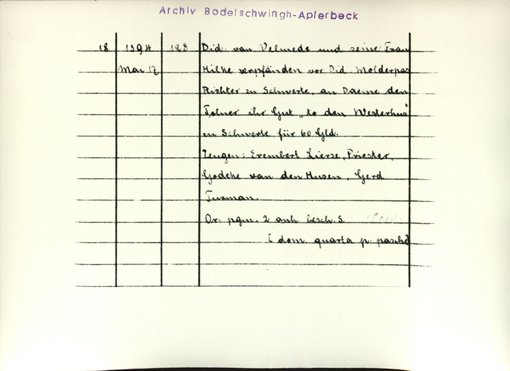 Archiv Bodelschwingh-Aplerbeck
18 1394 128 Did. van Velmede und seine Frau
Mai 17 Hilke verpfänden vor Did. Molderpas
Richter zu Schwerte, an Daeme den
Tolner ihr Gut „to den Westerhus"
zu Schwerte für 60 Gld.
Zeugen: Erembert Lierse, Priester,
Godeke van den Husen, Gerd
Or. pgm. 2 anh. besch. S.
(dom. quarta p. pasche)